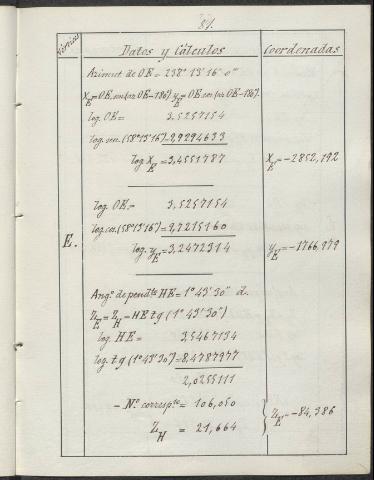 81.
Vértices
Datos y Cálculos
Coordenadas
Azimut de OE = 238° 13' 16" 0'''
X_E = OE.sen(az OE-180) y_E = OE.cos(az OE-180).
log. OE = 3,5257154
log. sen. (58°13'16") = 9,9294633
log. X_E = 3,4551787
X_E = -2852,192
log. OE = 3,5257154
log. cos. (58°13'16") = 9,7215160
E.
log. y_E = 3,2472314
y_E = -1766,979
Ang.º de pend.te HE = 1° 43' 30" d.
Z_E = Z_H - HE tg (1° 43' 30")
log. HE = 3,5467134
log. tg (1° 43' 30") = 8,4787977
2,0255111
- N.º corresp.te = 106,050
Z_E = -84,386
Z_H = 21,664